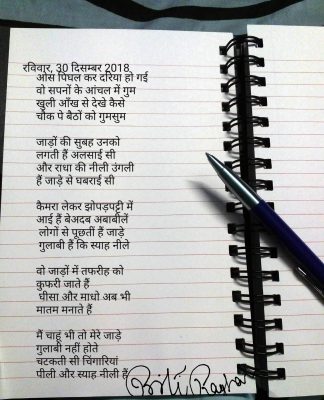 रविवार, 30 दिसम्बर 2018
ओस पिघल कर दरिया हो गई
वो सपनों के आंचल में गुम
खुली आँख से देखे कैसे
चौक पे बैठों को गुमसुम
जाड़ों की सुबह उनको
लगती हैं अलसाई सी
और राधा की नीली उंगली
हैं जाड़े से घबराई सी
कैमरा लेकर झोपड़पट्टी में
आई हैं बेअदब अबाबीलें
लोगों से पूछतीं हैं जाड़े
गुलाबी हैं कि स्याह नीले
वो जाड़ों में तफरीह को
कुफरी जाते हैं
घीसा और माधो अब भी
मातम मनाते हैं
मैं चाहूं भी तो मेरे जाड़े
गुलाबी नहीं होते
चटकती सी चिंगारियां
पीली और स्याह नीली हैं